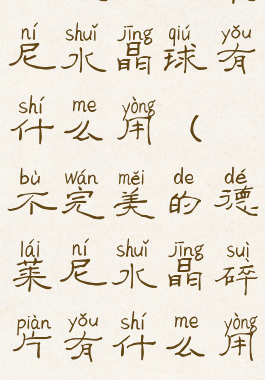 ní shuǐ jīng qiú yǒu
尼水晶球有
shí me yòng
什么用（
bù wán měi de dé
不完美的德
lái ní shuǐ jīng suì
莱尼水晶碎
piàn yǒu shí me yòng
片有什么用